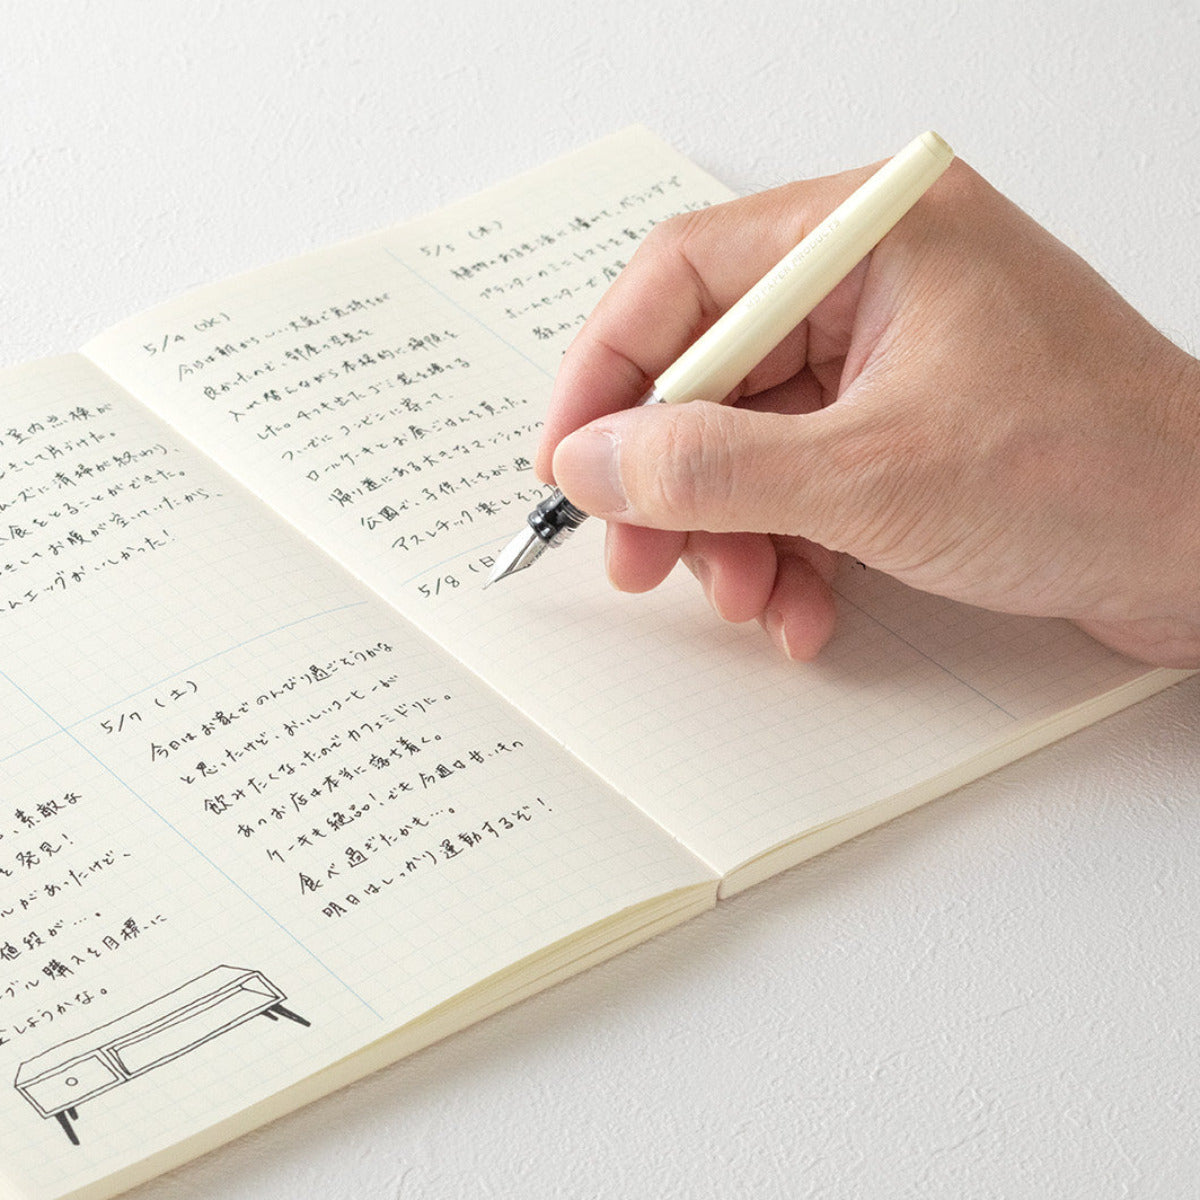 室内点検が
して片づけた。
ズに清掃が終わり、
食をとることができた。
してお腹が空いていたから、
ムエッグがおいしかった!
、素敵な
を発見!
ルがあったけど、
値段が…。
ブル購入を目標に
しようかな。
5/7 (土)
今日はお家でのんびり過ごそうかな
と思ったけど、おいしいコーヒーが
飲みたくなったのでカフェミドリに。
あのお店は本当に落ち着く。
ケーキも絶品!でも今週は甘いもの
食べ過ぎたかも…。
明日はしっかり運動するぞ!
5/4 (水)
今日は朝からいい天気で気持ちが
良かったので、部屋の空気を
入れ替えながら本格的に掃除を
した。
ついでにコンビニに寄って、
ロールケーキとお昼ごはんを買った。
帰り道にある大きなマンション
公園で、子供たちが遊
アスレチック楽しそう
5/5 (木)
植物のある生活に憧れて、ベランダで
プランターの
ホームセンターで店
教わっ
5/8 (日
MD PAPER PRODUCTS